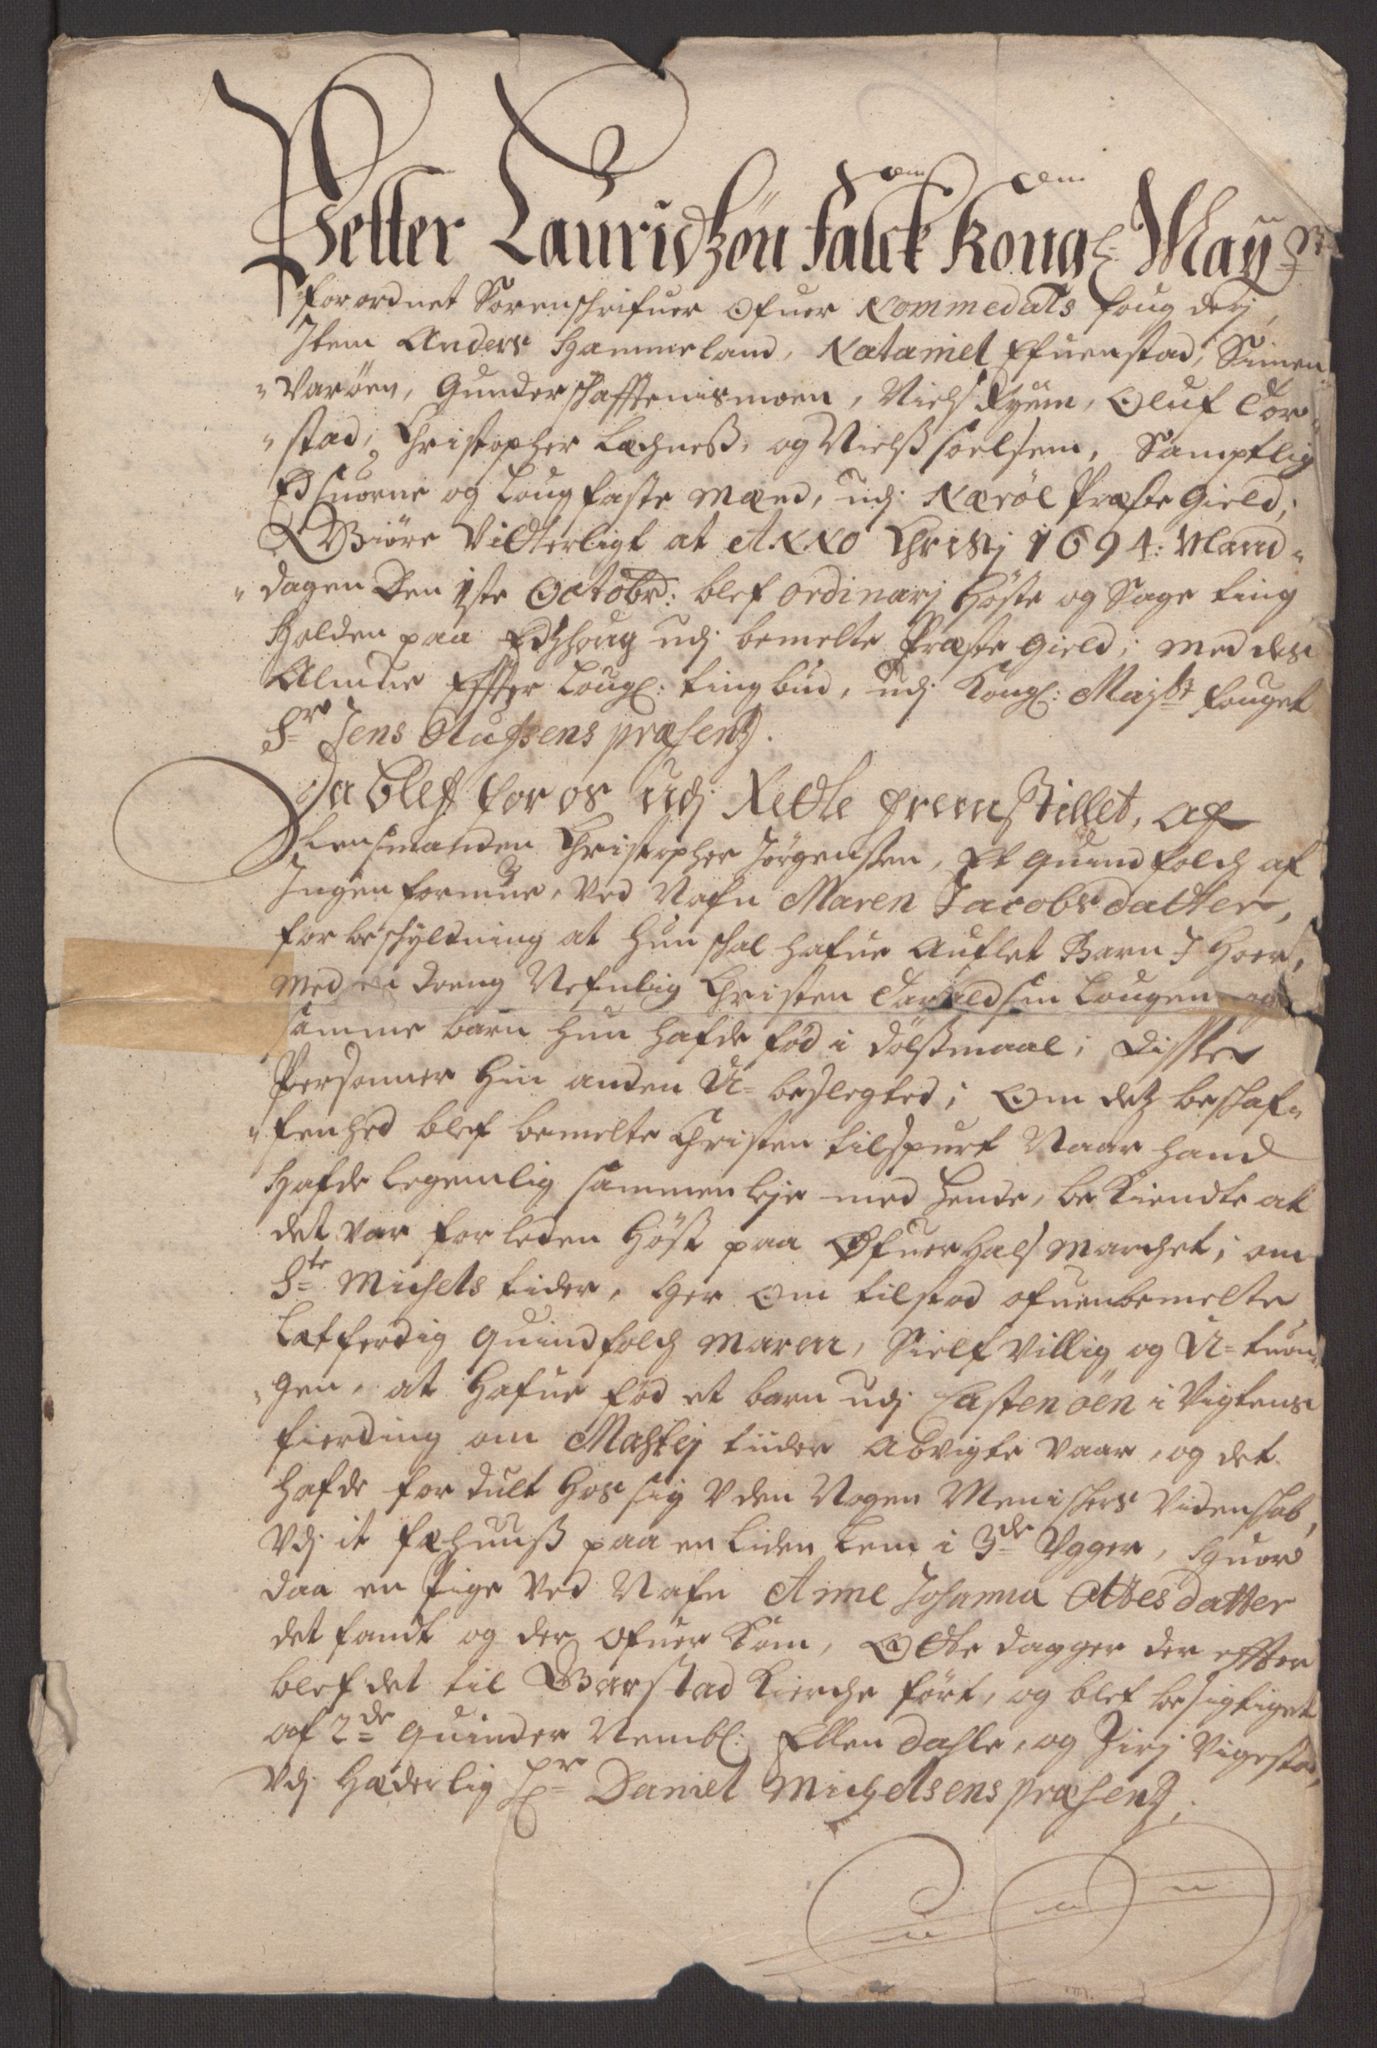 Petter Lauridzön Falck Kongl: May:
forordnet Sorenschrifuer Ofuer Nommedals fougderj,
Jtem Anders Hammerland, Nataniel Efuenstad, Simen
Varöen, Gunder schafftenismoen, Niels Ryum, Oluf Tor¬
stad, Christopher Lechneß, og Nielß soelsem, Samptlig
Edsuorne og Lougfaste Mænd, udj Nærøe Præste Gield,
Giöre Vitterligt at Anno Christj 1694: Mand¬
dagen Den 1ste Octobr: blef ordinarj Höste og Sage ting
Holden paa Edshoug udj bemelte Præste Gield; med des
Almue Effter Lougl: ting bud, udj Kongl: Maysts fouget
Sr Jens Olufsens præsentz.
Da blef for os udj Rette fremstillet, af
Lensmanden Christopher Jörgensen, Et Quindfolch af
Jngen formue, ved Nafn Maren Jacobsdatter,
for beschyldning at hun schal hafue Auflet Barn J Hoer,
med en dreng Nefnlig Christen Taraldsen Lougen og
samme barn hun hafde fød i dölßmaal; disse
Personner hin anden U-beslegted; Om detz beschaf¬
fenhed blef bemelte Christen tilspurt Naar hand
Hafde legemlig sammenleje med hende, bekiendte at
det var forleden Höst paa Ofuerhals Marchet; om
Ste Michels tider, her Om tilstod ofuenbemelte
Letferdig Quindfolch Maren, Sielf Villig og U-tuon¬
gen, at hafue fød et barn udj Castenöen i Vigtens
fierding om Mastej tiider Abvigte vaar, og det
hafde for dult hos sig Vden Nogen Menischers Videnschab,
Vdj it fæhuuß paa en liden Lem i 3de Vgger, huor
daa en Pige Ved Nafn Anne Johanna Ottesdatter
det fandt og der ofuer Kom, Otte dagger der effter
blef det til Garstad Kierche fört, og blef besigtiget
af 2de Quinder Nembl: Ellen Dahle, og Zirj Vigestad,
Vdj Hæderlig Hr Daniel Michelsens præsentz,